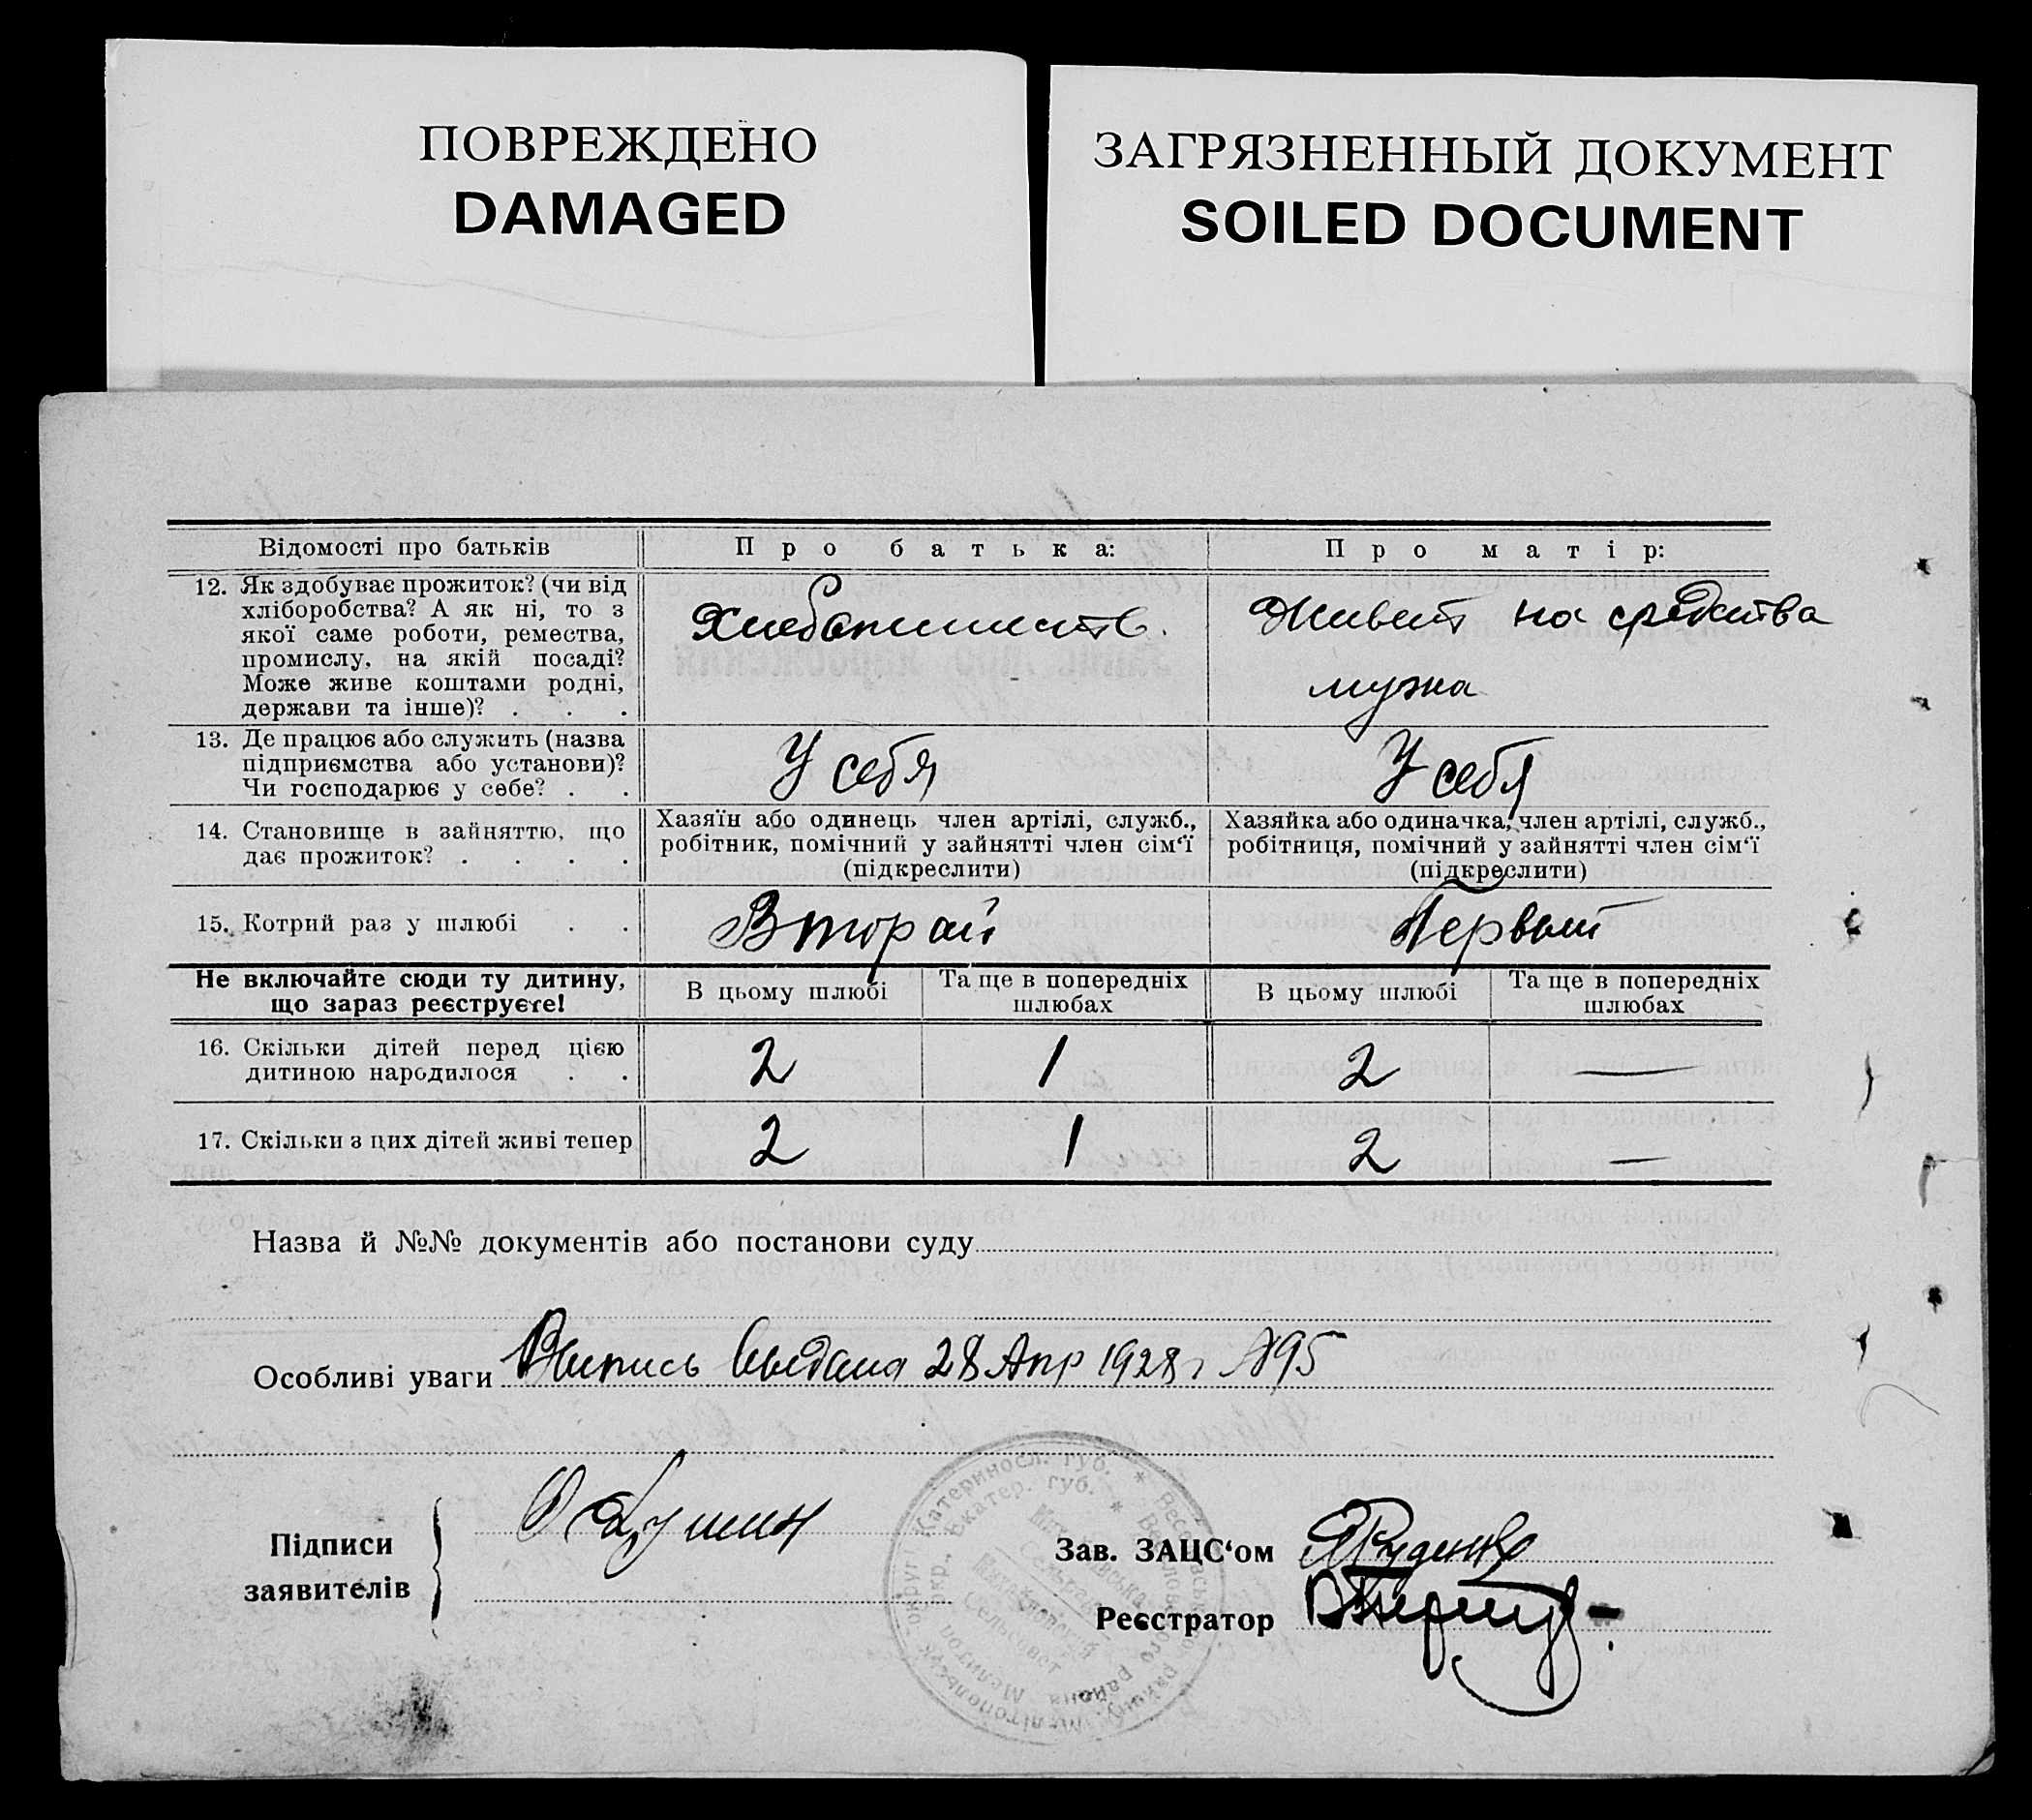 ПОВРЕЖДЕНО
DAMAGED
ЗАГРЯЗНЕННЫЙ ДОКУМЕНТ
SOILED DOCUMENT
Відомості про батьків
Про батька:
Про матір:
12. Як здобуває прожиток? (чи від
хліборобства? А як ні, то з
якої саме роботи, ремества,
промислу, на якій посаді?
Може живе коштами родні,
держави та інше)? . . .
Хлебопашеств.
Живет на средства
мужа
13. Де працює або служить (назва
підприємства або установи)?
Чи господарює у себе? . .
У себя
У себя
14. Становище в зайняттю, що
дає прожиток? . . . .
Хазяїн або одинець член артілі, служб.,
робітник, помічний у зайнятті член сім‘ї
(підкреслити)
Хазяйка або одиначка, член артілі, служб.,
робітниця, помічний у зайнятті член сім‘ї
(підкреслити)
15. Котрий раз у шлюбі . .
Второй
Первый
Не включайте сюди ту дитину,
що зараз реєструєте!
В цьому шлюбі
Та ще в попередніх
шлюбах
В цьому шлюбі
Та ще в попередніх
шлюбах
16. Скільки дітей перед цією
дитиною народилося . .
2
1
2
—
17. Скільки з цих дітей живі тепер
2
1
2
—
Назва й №№ документів або постанови суду
Особливі уваги Выпись выдана 28 Апр 1928 г №95
Підписи
заявителів
Зав. ЗАЦС‘ом
Реєстратор
Катериносл. губ. * Веселівського району, Мелітопольськ. округ
Екатер. губ. * Веселовского района Мелитоп. окр.,
Михайловский
Сельсовет